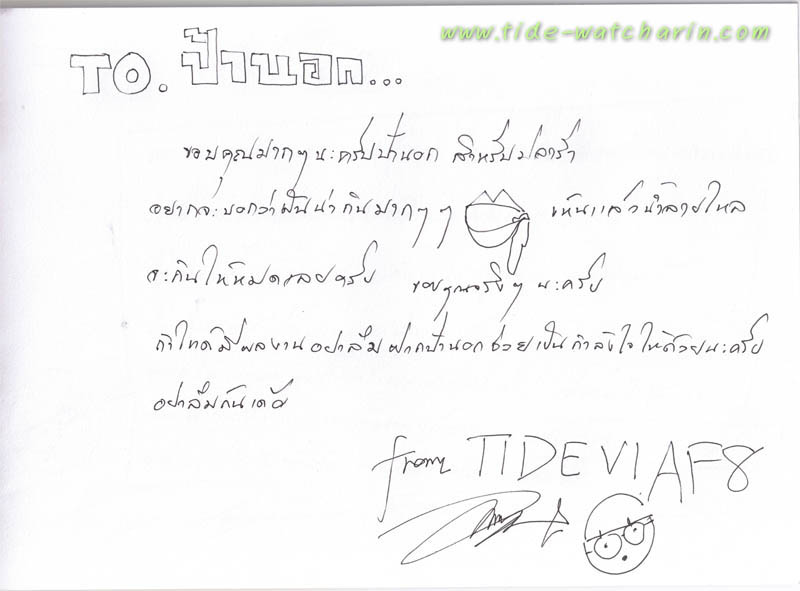 www.tide-watcharin.com
TO. ป้านอก...
ขอบคุณมากๆ นะครับป้านอก สำหรับปลาร้า
อยากจะบอกว่ามันน่ากินมากๆๆ เห็นแล้วน้ำลายไหล
จะกินให้หมดเลยครับ ขอบคุณจริงๆ นะครับ
ถ้าไทด์มีผลงานอย่าลืมฝากป้านอกช่วยเป็นกำลังใจให้ด้วยนะครับ
อย่าลืมกันเด้อ
from TIDE V! AF8